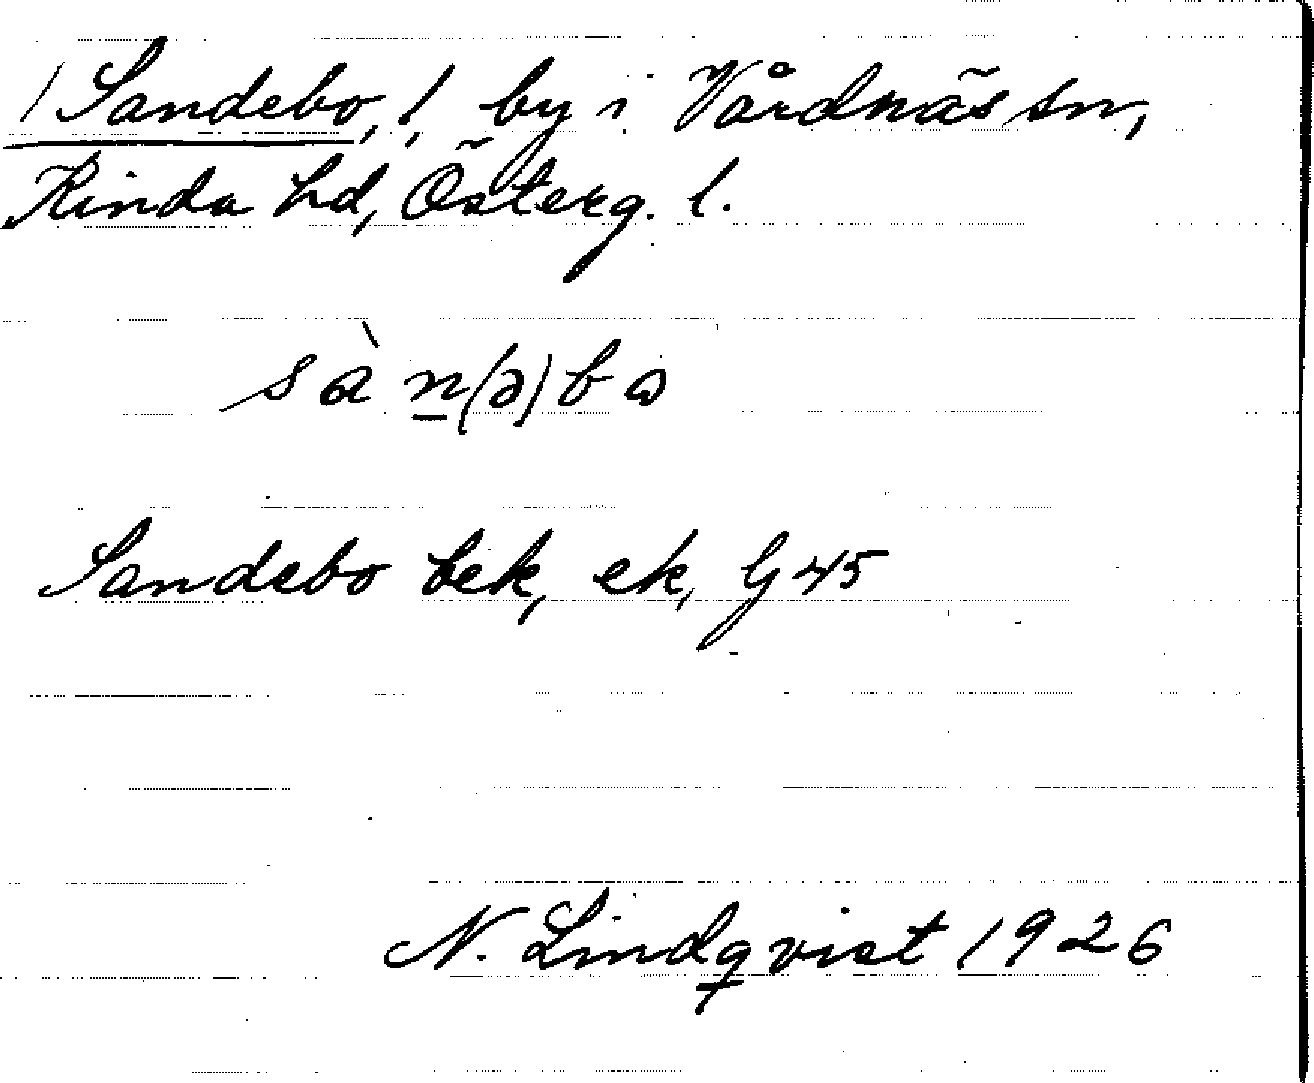 /Sandebo,/, by i Vårdnäs sn,
Kinda hd, Österg. l.
sàn(ə)bɷ
Sandebo bek, ek, G 45
N. Lindqvist 1926